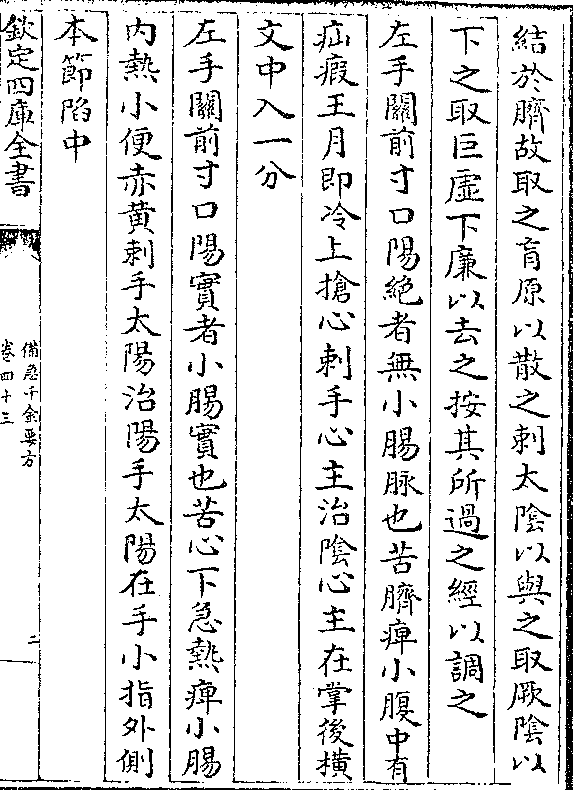 結於臍故取之肓原以散之刺太陰以與之取厥陰以
下之取巨虛下廉以去之按其所過之經以調之
左手關前寸口陽絶者無小腸脉也苦臍痺小腹中有
疝瘕王月即冷上搶心刺手心主治陰心主在掌後横
文中入一分
左手關前寸口陽實者小腸實也苦心下急熱痺小腸
内熱小便赤黄刺手太陽治陽手太陽在手小指外側
本節陷中
欽定四庫全書
備急千金要方
卷四十三
二